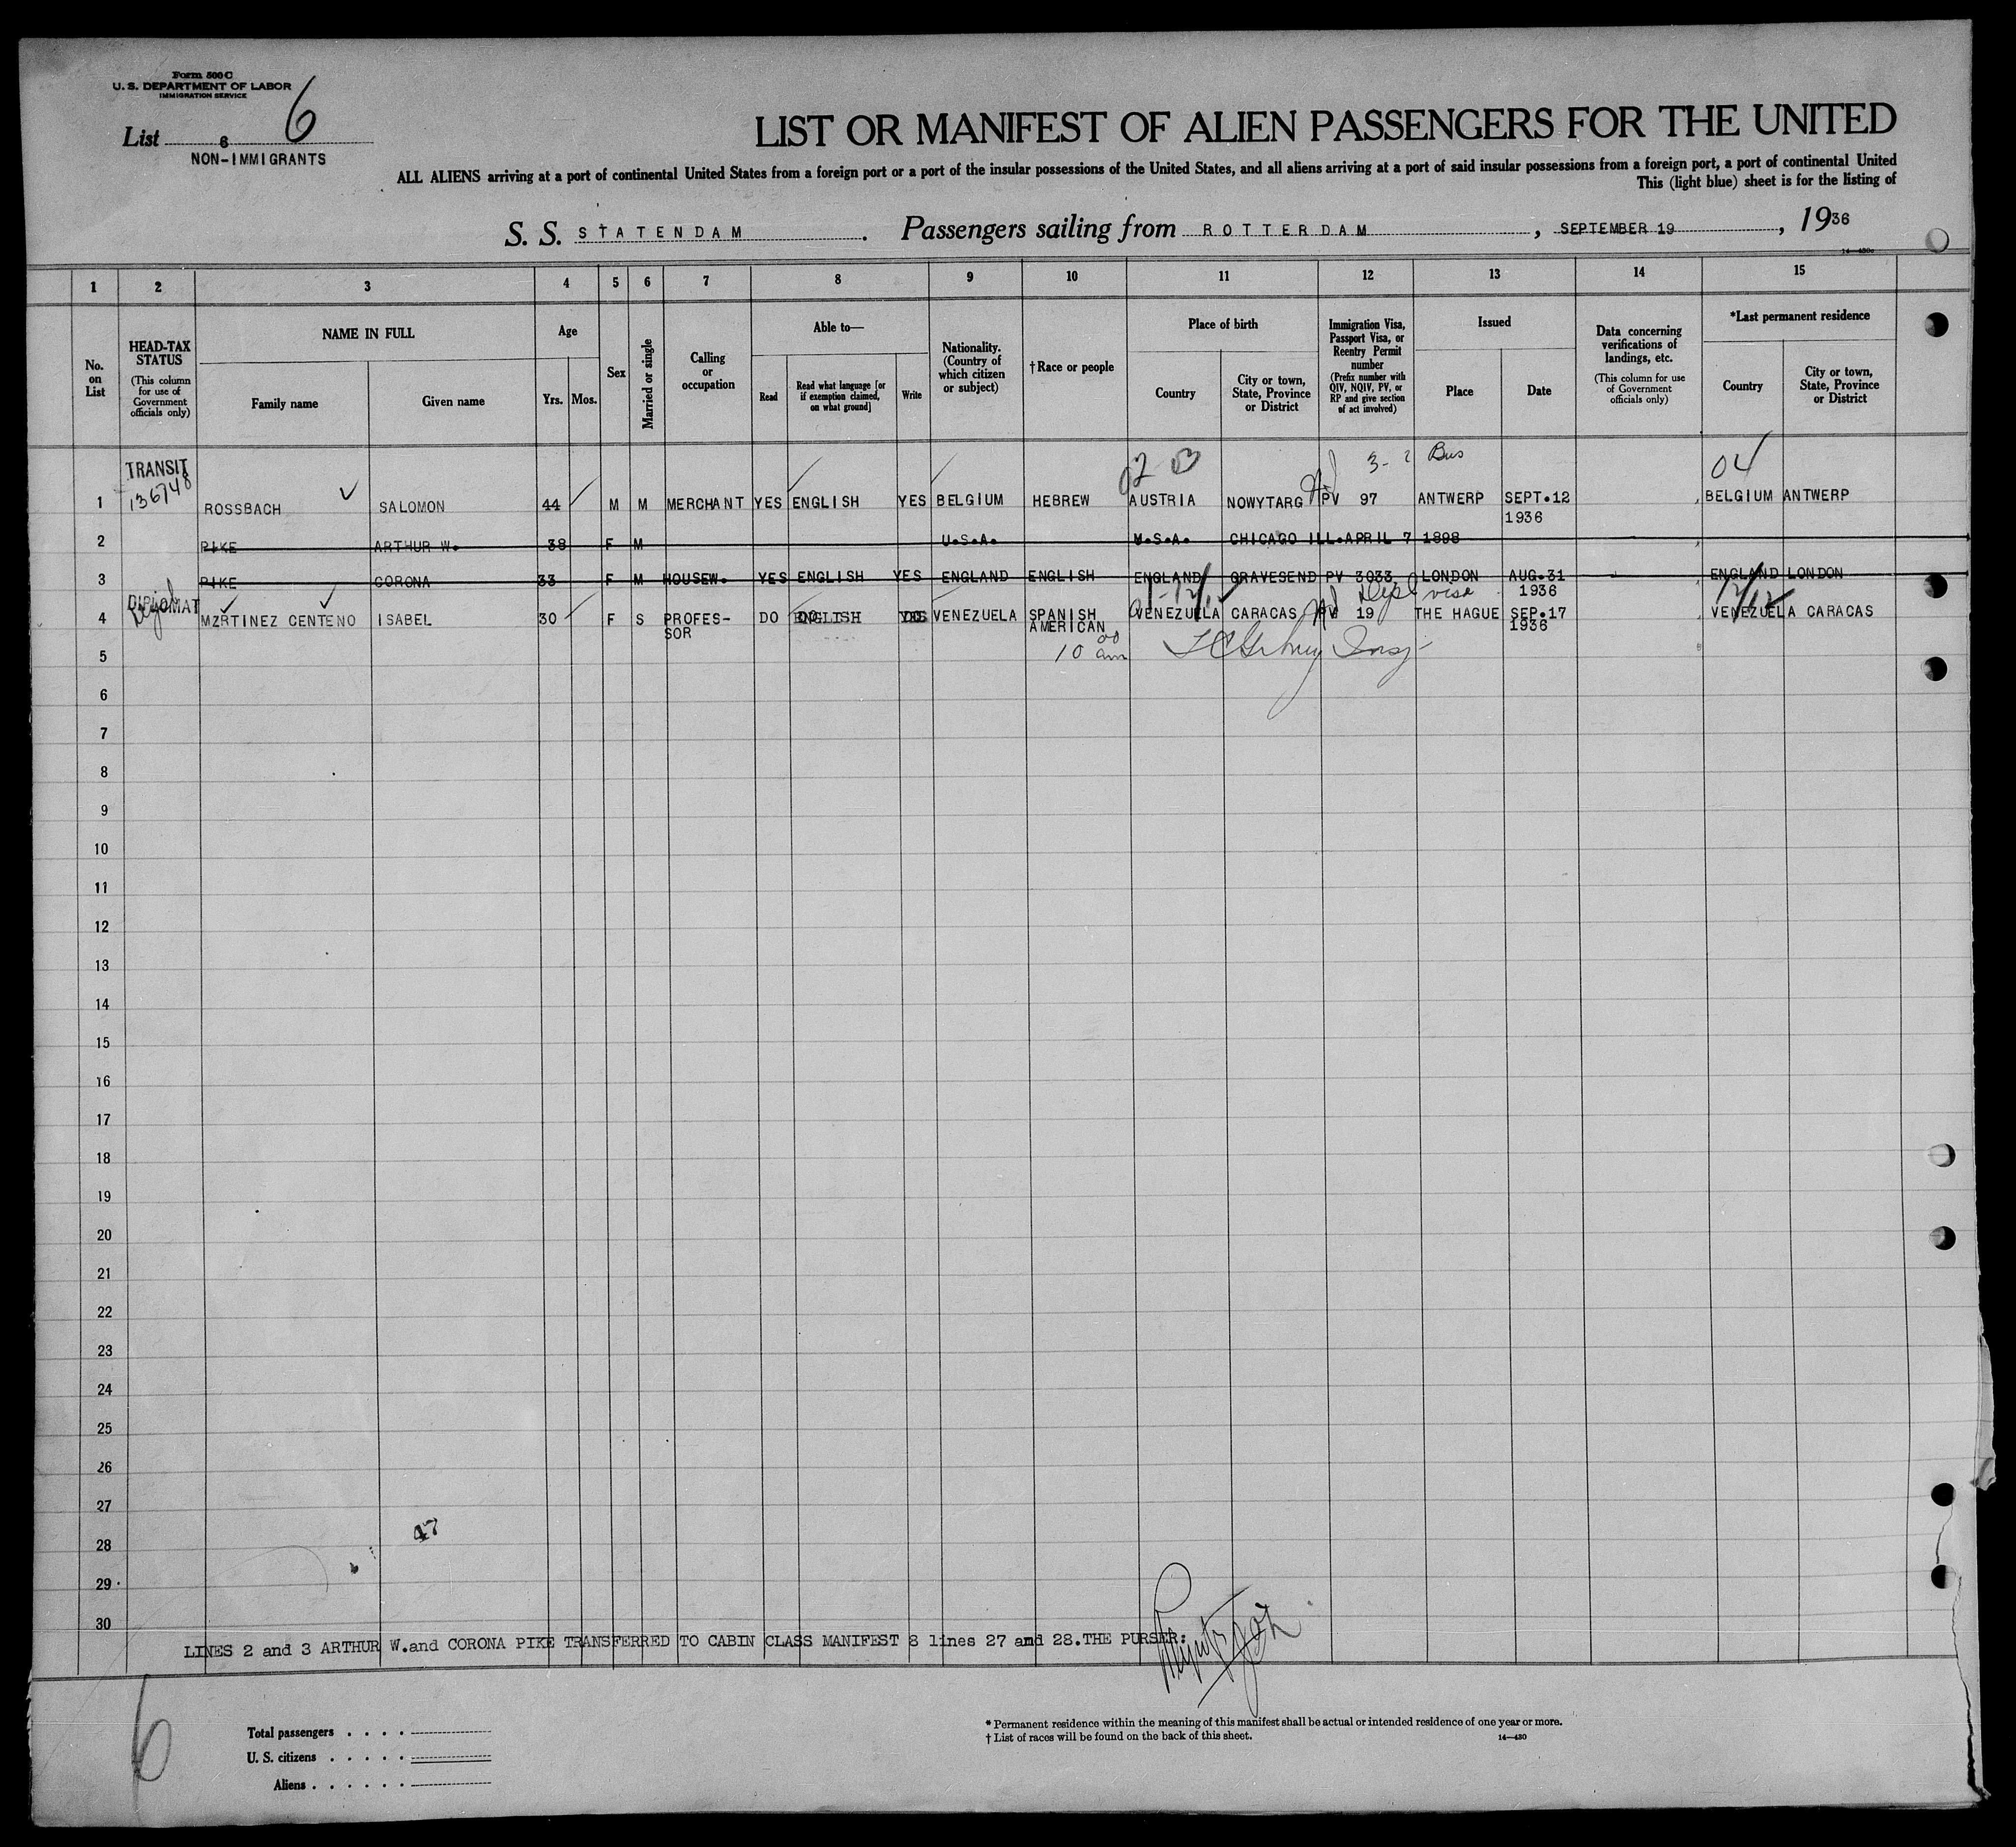 Form 500 C
U. S. DEPARTMENT OF LABOR
IMMIGRATION SERVICE
List 6 6
NON-IMMIGRANTS
LIST OR MANIFEST OF ALIEN PASSENGERS FOR THE UNITED
ALL ALIENS arriving at a port of continental United States from a foreign port or a port of the insular possessions of the United States, and all aliens arriving at a port of said insular possessions from a foreign port, a port of continental United
This (light blue) sheet is for the listing of
S. S. STATENDAM. Passengers sailing from ROTTERDAM, SEPTEMBER 19, 1936
14-430c
1 2 3 4 5 6 7 8 9 10 11 12 13 14 15
No. on List
HEAD-TAX STATUS
(This column for use of Government officials only)
NAME IN FULL
Family name
Given name
Age
Yrs. Mos.
Sex
Married or single
Calling or occupation
Able to—
Read
Read what language [or if exemption claimed, on what ground]
Write
Nationality. (Country of which citizen or subject)
†Race or people
Place of birth
Country
City or town, State, Province or District
Immigration Visa, Passport Visa, or Reentry Permit number
(Prefix number with QIV, NQIV, PV, or RP and give section of act involved)
Issued
Place
Date
Data concerning verifications of landings, etc.
(This column for use of Government officials only)
*Last permanent residence
Country
City or town, State, Province or District
TRANSIT 136748 3- Bus 04
1 ROSSBACH SALOMON 44 M M MERCHANT YES ENGLISH YES BELGIUM HEBREW AUSTRIA NOWYTARG PV 97 ANTWERP SEPT.12 1936 BELGIUM ANTWERP
2 PIKE ARTHUR W. 38 F M U.S.A. U.S.A. CHICAGO ILL.APRIL 7 1898
3 PIKE CORONA 33 F M HOUSEW. YES ENGLISH YES ENGLAND ENGLISH ENGLAND GRAVESEND PV 3033 LONDON AUG.31 1936 ENGLAND LONDON
DIPLOMAT Dipl visa
4 MZRTINEZ CENTENO ISABEL 30 F S PROFES-SOR DO ENGLISH VENEZUELA SPANISH AMERICAN VENEZUELA CARACAS PV 19 THE HAGUE SEP.17 1936 VENEZUELA CARACAS
5 10 00 am
6
7
8
9
10
11
12
13
14
15
16
17
18
19
20
21
22
23
24
25
26
27
47
28
29
30
LINES 2 and 3 ARTHUR W.and CORONA PIKE TRANSFERRED TO CABIN CLASS MANIFEST 8 lines 27 and 28.THE PURSER:
6
Total passengers . . . .
U. S. citizens . . . . .
Aliens . . . . . .
* Permanent residence within the meaning of this manifest shall be actual or intended residence of one year or more.
† List of races will be found on the back of this sheet.
14—430